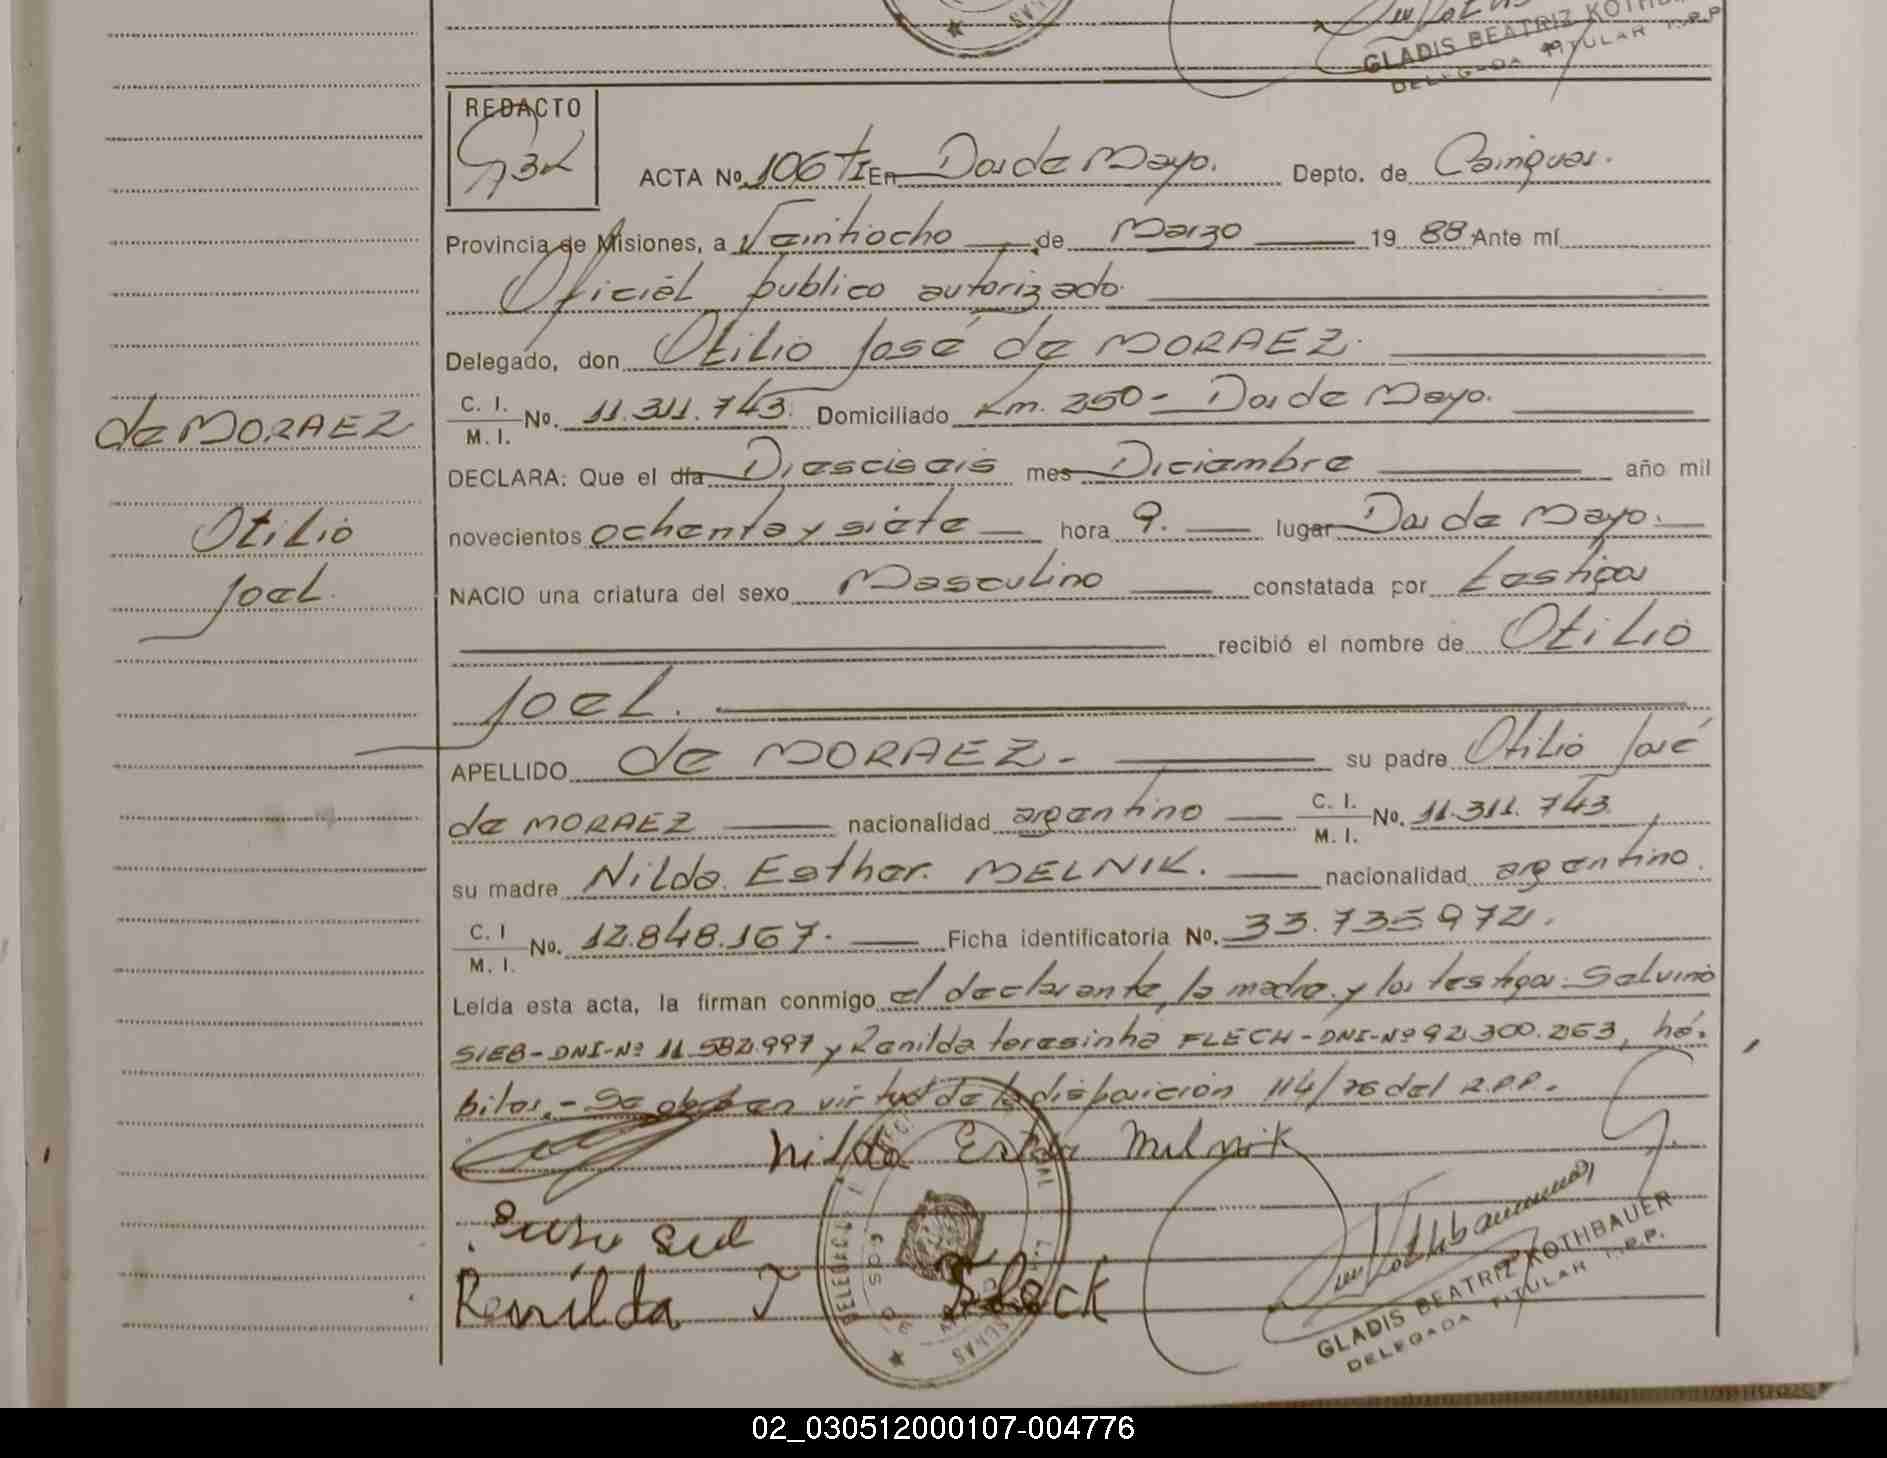 GLADIS BEATRIZ KOTHBAUER
DELEGADA TITULAR R.P.P.
REDACTO
ACTA Nº 106 TI En Dos de Mayo. Depto. de Cainguas.
Provincia de Misiones, a Veintiocho de Marzo 19 88 Ante mí
Oficial público autorizado
Delegado, don Otilio José de MORAEZ.
C. I.
M. I.
No. 11.311.743. Domiciliado Km. 250 - Dos de Mayo.
de MORAEZ
DECLARA: Que el día Diesciseis mes Diciembre año mil
novecientos ochenta y siete hora 9. lugar Dos de Mayo.
Otilio
Joel.
NACIO una criatura del sexo Masculino constatada por testigos
recibió el nombre de Otilio
Joel.
APELLIDO de MORAEZ. su padre Otilio José
de MORAEZ nacionalidad argentino C. I. M. I. No. 11.311.743.
su madre Nilda Esther MELNIK. nacionalidad argentino.
C. I M. I. No. 12.848.167. Ficha identificatoria No. 33.735972.
Leída esta acta, la firman conmigo el declarante, la madre y los testigos: Salvino
SIEB-DNI-Nº 11.582.997 y Renilda teresinha FLECH-DNI-Nº 92.300.263, há-
biles.- Se labra en virtud de la disposición 114/76 del R.P.P.-
Nilda Ester Melnik
Renilda T Fleck
GLADIS BEATRIZ KOTHBAUER
DELEGADA TITULAR R.P.P.
02_030512000107-004776